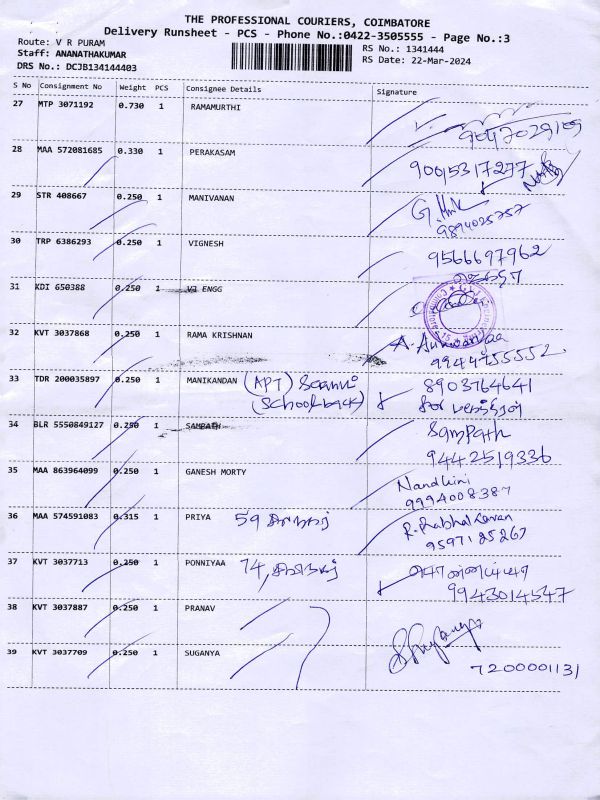 THE PROFESSIONAL COURIERS, COIMBATORE
Delivery Runsheet - PCS - Phone No.:0422-3505555 - Page No.:3
Route: V R PURAM
Staff: ANANATHAKUMAR
DRS No.: DCJB134144403
RS No.: 1341444
RS Date: 22-Mar-2024
S No Consignment No Weight PCS Consignee Details Signature
27 MTP 3071192 0.730 1 RAMAMURTHI
28 MAA 572081685 0.330 1 PERAKASAM 9005317277
29 STR 408667 0.250 1 MANIVANAN
9894025757
30 TRP 6386293 0.250 1 VIGNESH 9566697962
31 KDI 650388 0.250 1 VJ ENGG
32 KVT 3037868 0.250 1 RAMA KRISHNAN
9944755552
33 TDR 200035897 0.250 1 MANIKANDAN (APT) 8903764641
(School back)
34 BLR 5550849127 0.250 1 SAMPATH Sampath
9442519336
35 MAA 863964099 0.250 1 GANESH MORTY Nandhini
9994008387
36 MAA 574591083 0.315 1 PRIYA 59 R. Prabhakaran
9597125267
37 KVT 3037713 0.250 1 PONNIYAA 74,
9943014547
38 KVT 3037887 0.250 1 PRANAV
39 KVT 3037709 0.250 1 SUGANYA
7200001131